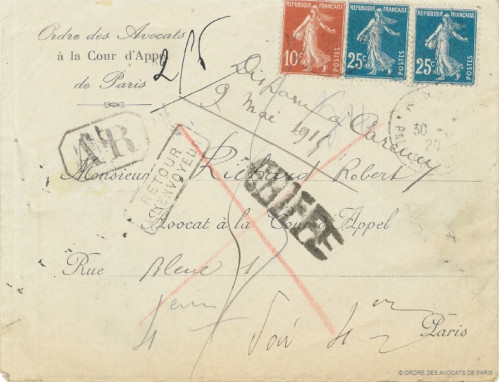 Ordre des Avocats
à la Cour d'Appel
de Paris
2/5
RÉPUBLIQUE FRANÇAISE
10c
POSTES
RÉPUBLIQUE FRANÇAISE
25c
POSTES
RÉPUBLIQUE FRANÇAISE
25c
POSTES
Disparu à Carency
9 mai 1915
30
20
AR
RETOUR
A L'ENVOYEUR
Monsieur Robert
Avocat à la Cour d'Appel
Rue Bleue 1
4 Voir 4
Paris
© ORDRE DES AVOCATS DE PARIS